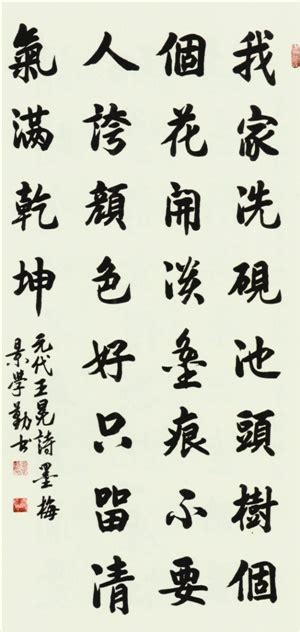 我家洗硯池頭樹個
個花開淡墨痕不要
人誇顏色好只留清
氣滿乾坤
元代王冕詩墨梅
景學勤书